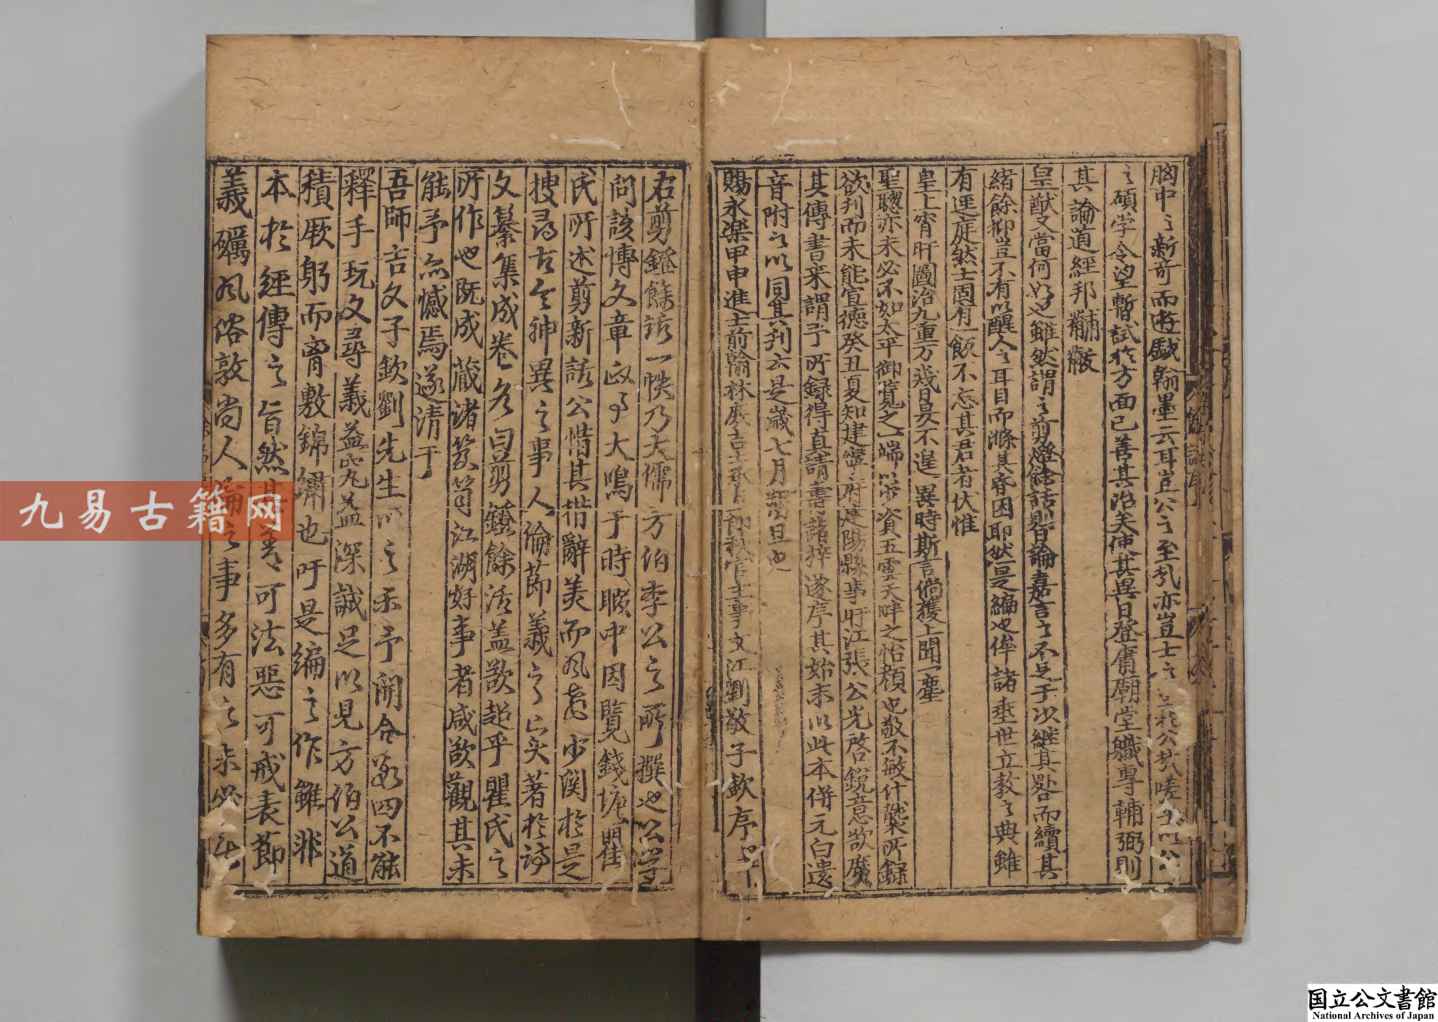 胸中之新奇而游戲翰墨云耳豈公之至孔亦豈士之
之碩学令望暫試於方面已善其治矣使其異日登庸廟堂職專輔弼則
其論道經邦黼黻
皇猷又當何如也雖然謂之剪燈餘話則皆論嘉言之不足于以繼其畧而續其
緒餘抑豈不有以醒人之耳目而滌其昏困耶然是編也俾諸垂世立教之典雖
有逕庭然士園有一飯不忘其君者伏惟
皇上宵旰圖治九重万㡬日昃不遑異時斯言倘獲上聞一塵
聖聰亦未必不如太平御覽之一端以少資五雲天畔之怡顏也敬不敏什襲所録
欲刋而未能宣德癸丑夏知建寧府建陽縣事旴江張公光啓銳意欲廣
其傳書来謂予所録得真請壽諸梓遂序其始末以此本併元白遺
音附之以同其刋云是歲七月朔旦也
賜永樂甲申進士前翰林庶吉士承直郎秋官主事文江劉敬子欽序
右剪鐙餘話一帙乃大儒方伯李公之所撰也公學
问該博文章政事大鳴于時暇中因覽錢塘瞿
氏所述剪新話公惜其措辭美而風教少関於是
搜尋古今神異之事人倫莭義之实著於詩
文纂集成卷名曰剪鐙餘話盖欲超乎瞿氏之
所作也既成藏諸笈笥江湖好事者咸欲觀其未
能予亦憾焉遂請于
吾師吉文子欽劉先生以之示予開合数四不能
釋手玩文尋義益玩益深誠足以見方伯公道
積厥躬而胷敷錦繡也吁是編之作雖非
本於經傳之旨然其善可法惡可戒表節
義礪風俗敦尚人倫之事多有之未必無
九易古籍网
国立公文書館
National Archives of Japan